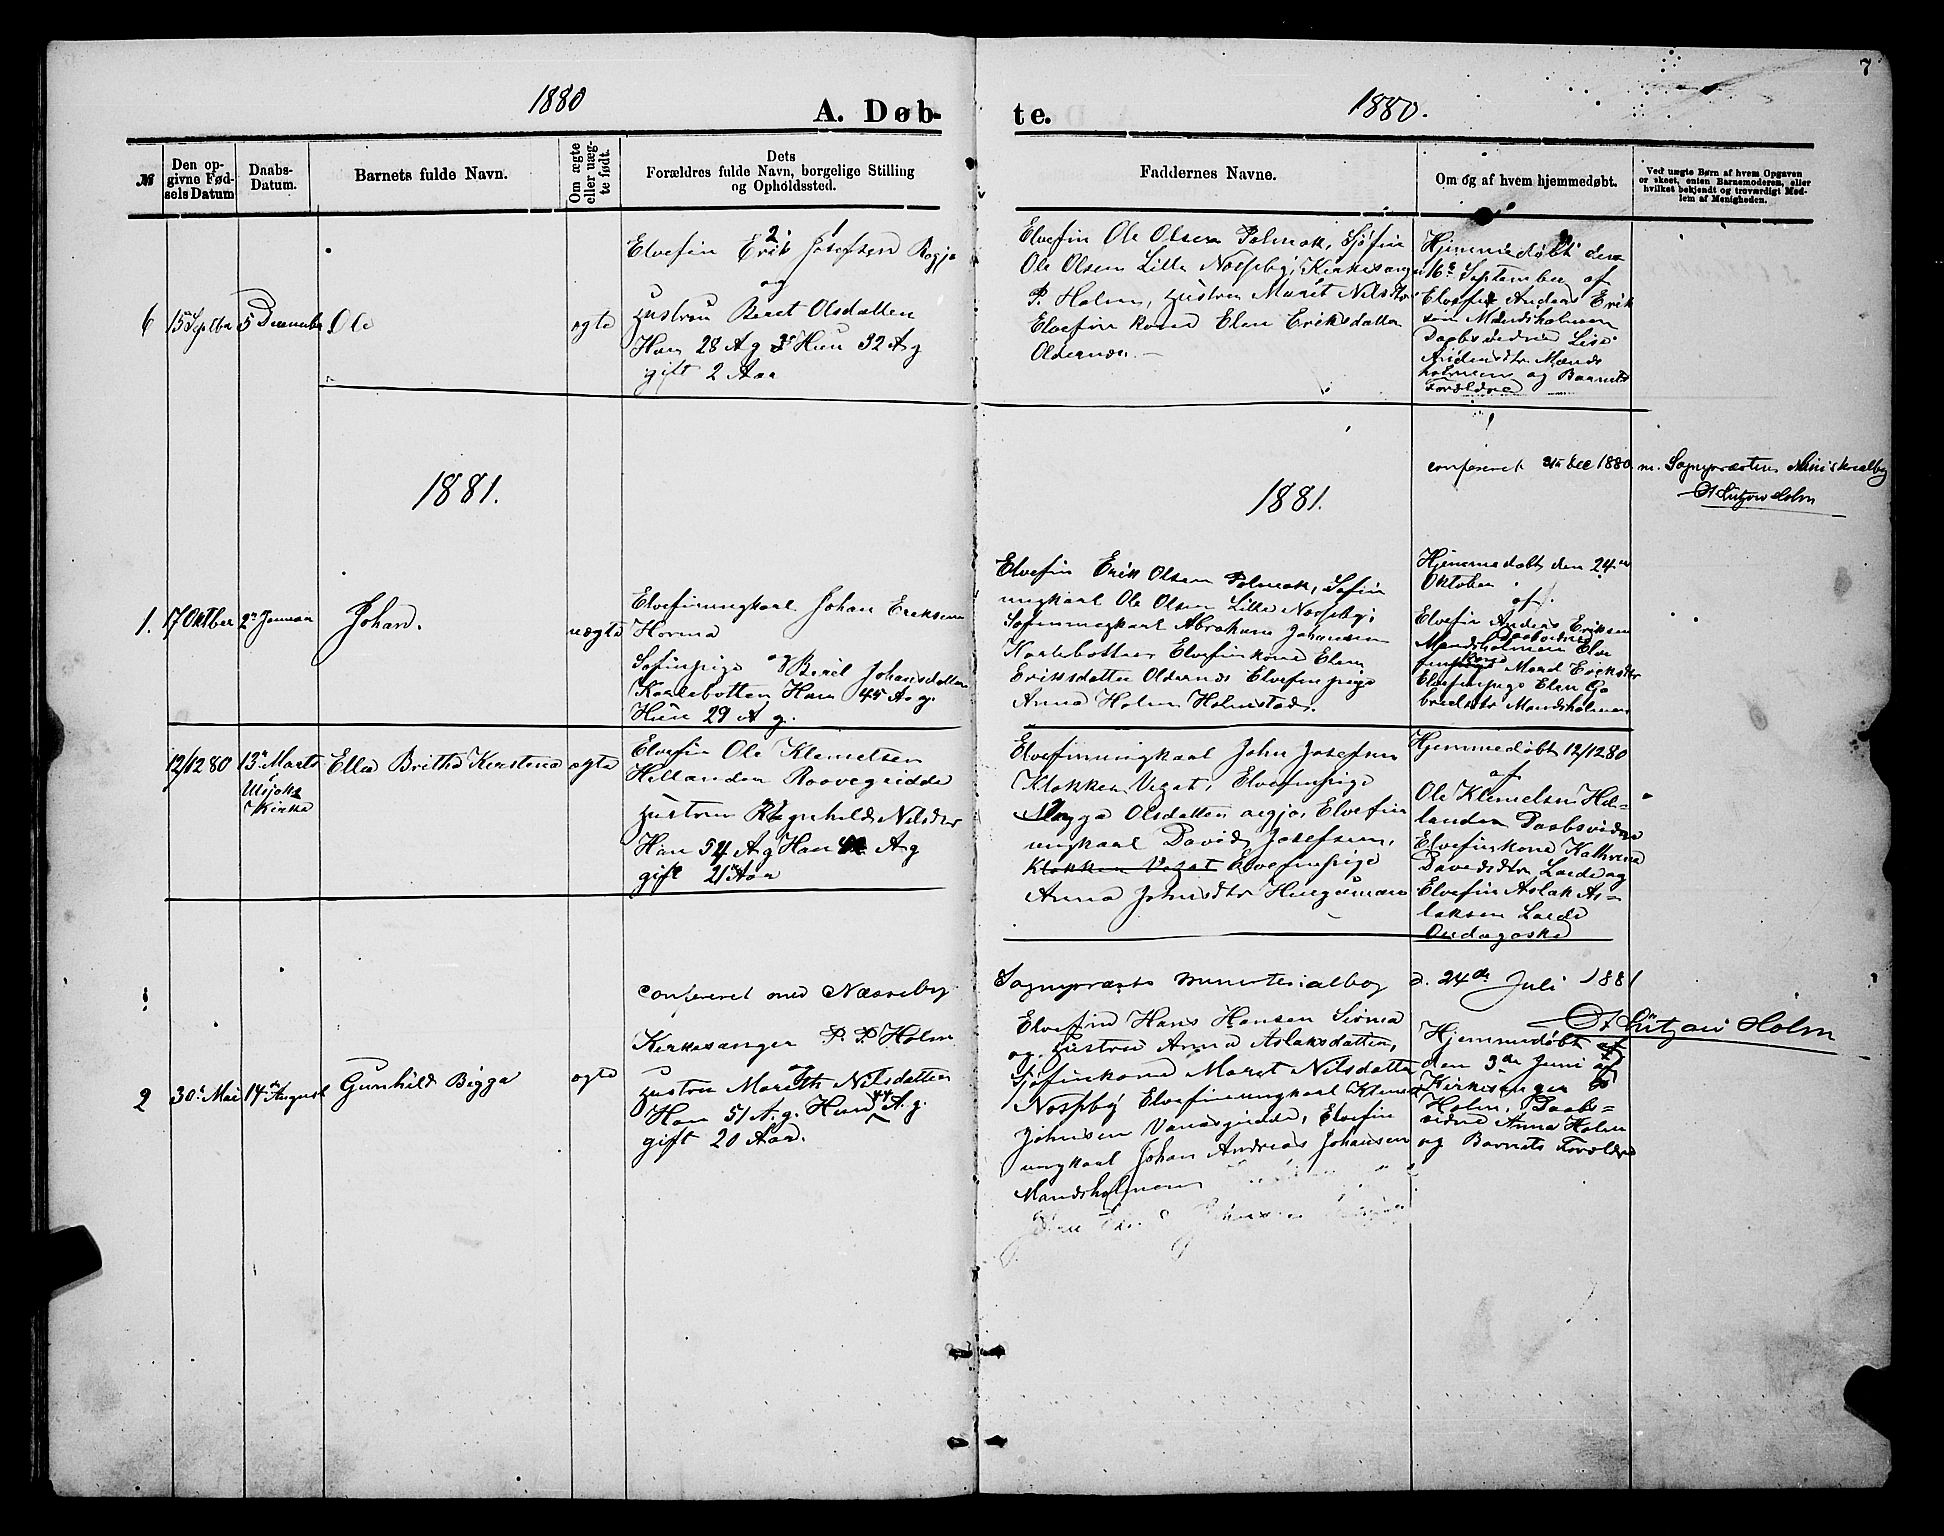 7
1880
A. Døb-
te.
1880.
№
Den op-
givne Fød-
sels Datum
Daabs-
Datum.
Barnets fulde Navn.
Om ægte
eller uæg-
te født.
Dets
Forældres fulde Navn, borgelige Stilling
og Opholdssted.
Faddernes Navne.
Om og af hvem hjemmedøbt.
Ved uægte Børn af hvem Opgaven
er skeet, enten Barnemoderen, eller
hvilket bekjendt og troværdigt Med-
lem af Menigheden.
6
15 Septbr
5 December
Ole
ægte
Elvefin Erik Josefsen
og
Hustru Beret Olsdatter
Han 28 A g Hun 32 A g
gift 2 Aar
Elvefin Ole Olsen Polmak, Sjøfin
Ole Olsen Lille Næsseby, Kirkesanger
P. Holm, Hustru Marit Nilsdtr
Elvefin kone Elen Eriksdatter
Oldernæs.
Hjemmedøbt den
16e September af
Elvefin Anders Erik
sen Mandsholmen
Daabsvidne Lise
Mands
holmen og Barnets
Forældre
confereret 31te Dec 1880 m. Sognepræstens Ministerialbog
Lützow Holm
1881.
1881.
1.
17 Oktber
2n Januar
Johan.
uægte
Elvefinungkarl Johan Eriksen
Horma
og
Søfinpige Beret Johansdatter
Karlebotten Han 45 A g.
Hun 29 A g.
Elvefin Erik Olsen Polmak, Søfin
ungkarl Ole Olsen Lille Næsseby,
Søfinungkarl Abraham Johansen
Karlebotten Elvefinkone Elen
Eriksdatter Oldernæs Elvefinpige
Anna Holm Holmstad.
Hjemmedøbt den 24de
Oktober
af
Elvefin Anders Eriksen
Daabsvidne
Mandsholmen Elve
kone
Mard Eriksdtr
Elvefinpige Elen Ga
brielsdtr Mandsholmen
12/12 80
13n Marts
Utsjoks
Kirke
Ellen Britha Kirstina
ægte
Elvefin Ole Klemetsen
Hillanden Roavvegiedde
Hustru Ragnhild Nilsdtr
Han 54 A g Hun A g
gift 21 Aar
Elvefinungkarl John Josefsen
Klokken Vezat, Elvefinpige
Olsdatter Elvefin
ungkarl David Josefsen,
Klokken Vezat Elvefinpige
Anna Johnsdtr
Hjemmedøbt 12/12 80
af
Ole Klemetsen Hil-
landen Daabsvidne
Elvefinkone Kathrina
Davidsdtr og
Elvefin Aslak As-
laksen
confereret med Næsseby
Sognepræsts ministerialbog
d. 24de Juli 1881
Lützow Holm
2
30' Mai
14n August
Gunhild Bigga
ægte
Kirkesanger P. P. Holm
og
Hustru Mareth Nilsdatter
Han 51 A. g. Hun 44 A. g.
gift 20 Aar.
Elvefin Hans Hansen Sirma
og Hustru Anna Aslaksdatter,
Sjøfinkone Maret Nilsdatter
Næsseby Elvefinungkarl Klemet
Johnsen Vanasgiedde, Elvefin
ungkarl Johan Andreas Johansen
Mandsholmen
Hjemmedøbt
den 3de Juni af
Kirkesanger
Holm, Daabs-
vidne Anna Holm
og Barnets Forældre